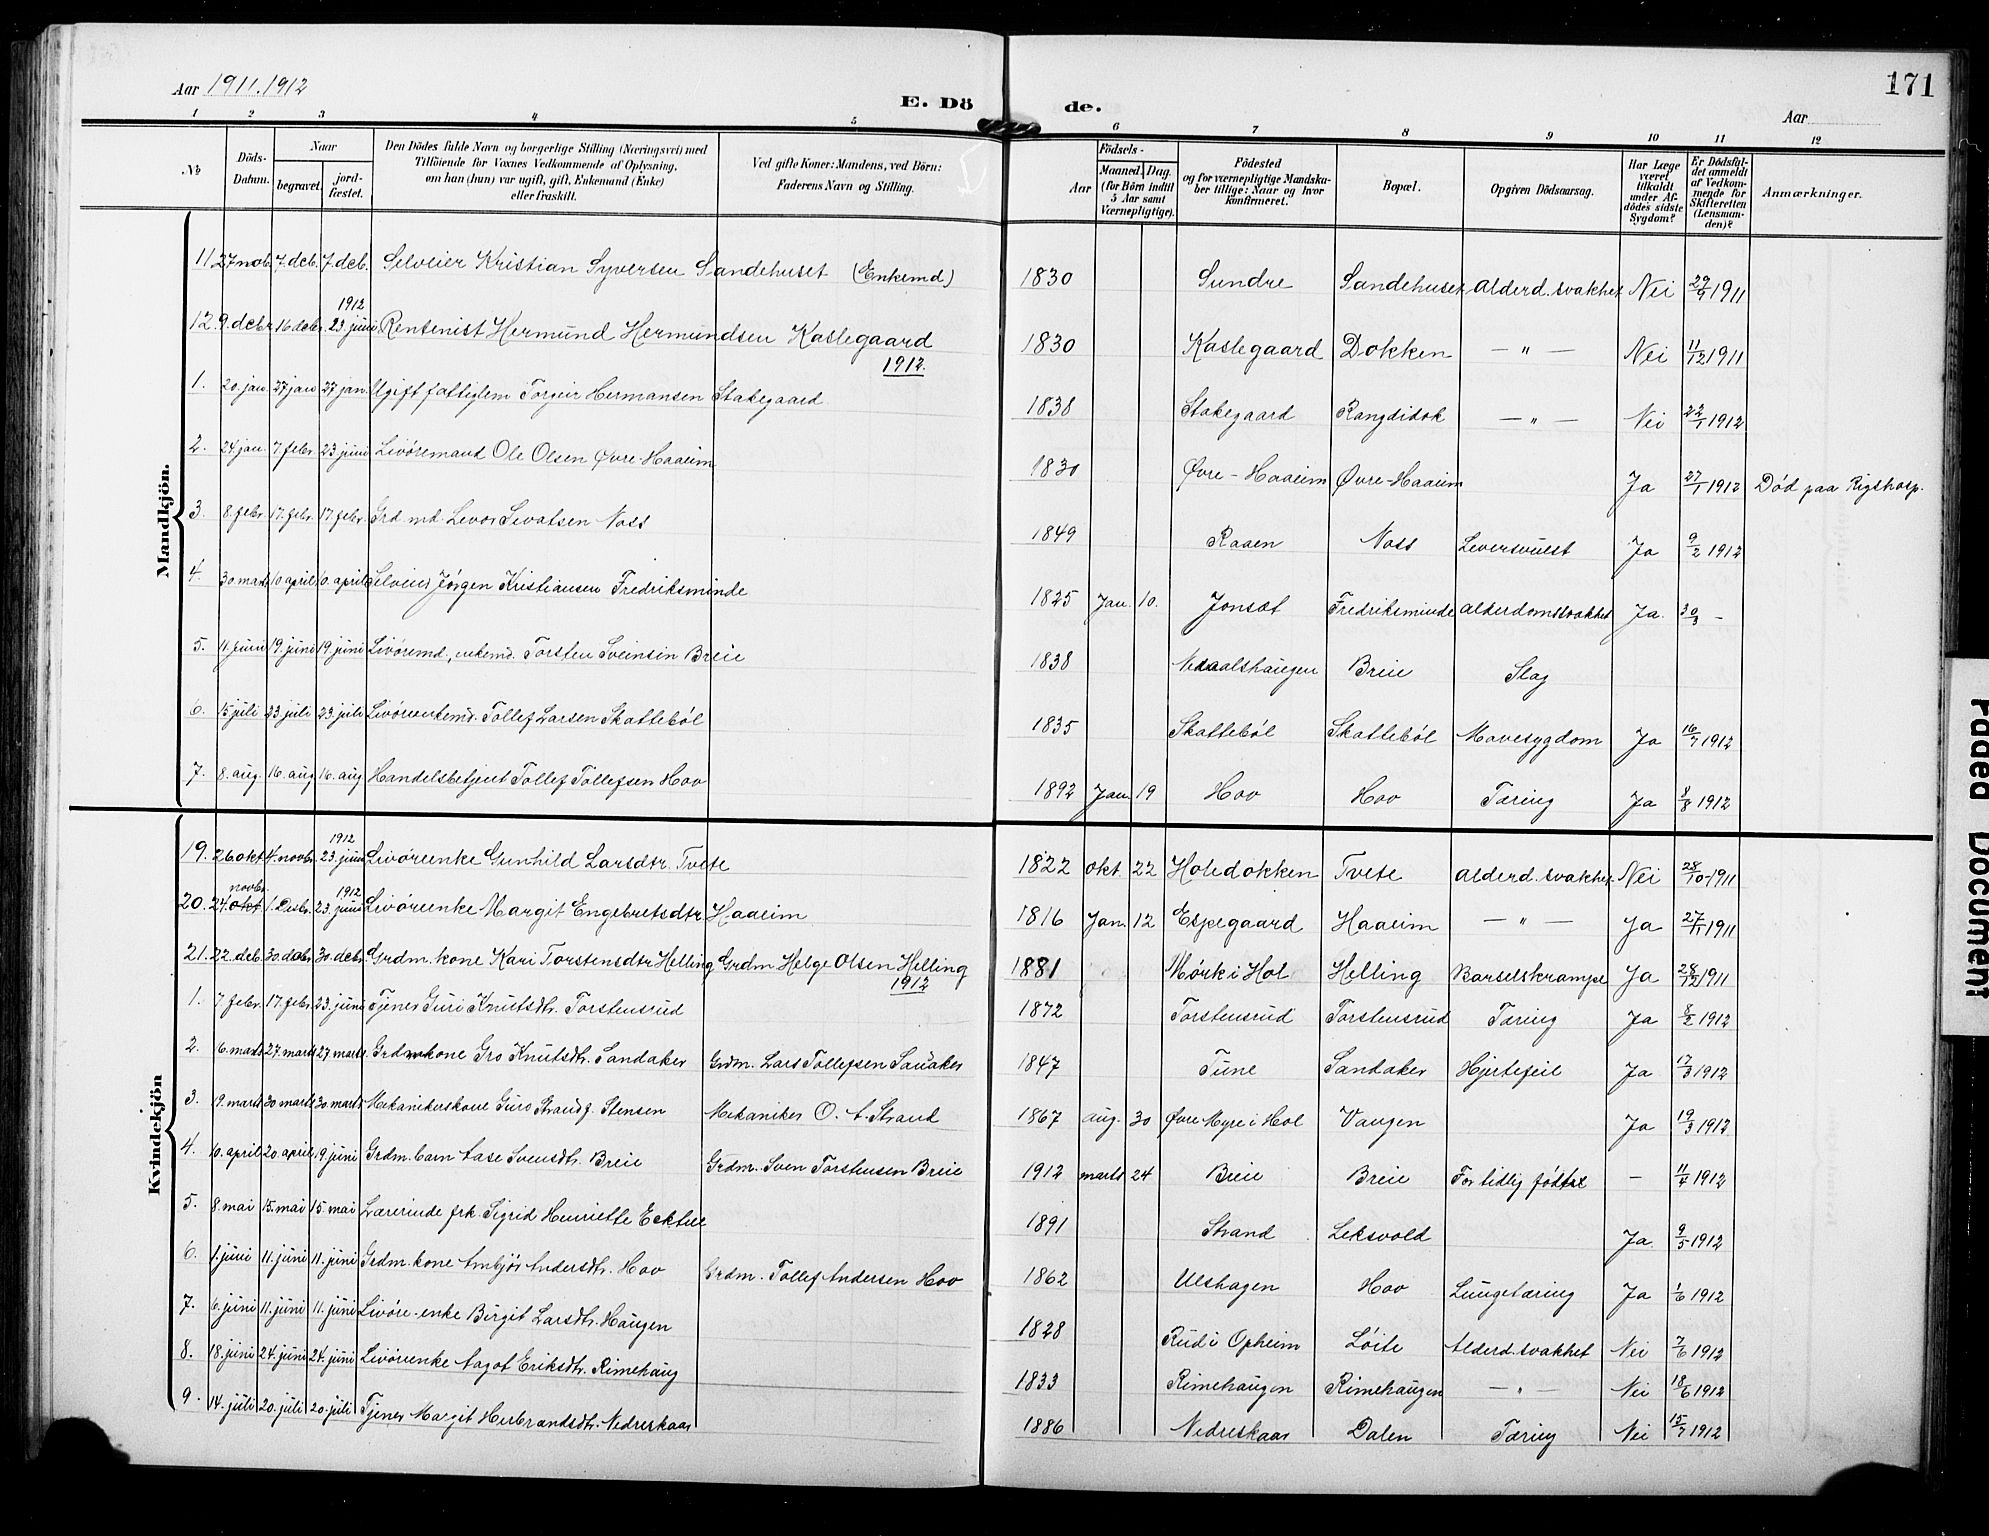 Aar 1911.1912
E. Dö de.
171
Aar
1 2 3 4 5 6 7 8 9 10 11 12
No
Döds-Datum.
Naar
begravet.
jord-fæstet.
Den Dödes fulde Navn og borgerlige Stilling (Næringsvei) med
Tilföiende for Voxnes Vedkommende af Oplysning,
om han (hun) var ugift, gift, Enkemand (Enke)
eller fraskilt.
Ved gifte Koner: Mandens, ved Börn:
Faderens Navn og Stilling.
Födsels-
Aar
Maaned. Dag.
(for Börn indtil
5 Aar samt
Værnepligtige).
Födested
og for værnepligtige Mandska-
ber tillige: Naar og hvor
konfirmeret.
Bopæl.
Opgiven Dödsaarsag.
Har Læge
været
tilkaldt
under Af-
dödes sidste
Sygdom?
Er Dödsfal-
det anmeldt
af Vedkom-
mende for
Skifteretten
(Lensman-
den)?
Anmærkninger.
Mandkjön.
11 27 nob. 7. deb. 7. deb. Selveier Kristian Syversen Sandehuset (Enkemd) 1830 Sundre Sandehuset Alderd. svakhet Nei 29/9 1911
12. 9. debr. 16 debr. 1912 23. juni Rentenist Hermund Hermundsen Kaslegaard 1830 Kaslegaard Dokken — " — Nei 11/12 1911
1912.
1. 20. jan. 27 jan 27 jan. Ugift fattiglem Torgeir Hermansen Stakegaard 1838 Stakegaard Rangdidok — " — Nei 22/1 1912
2. 24 jan. 7 febr. 23 juni Livøremand Ole Olsen Øvre-Haaeim 1830 Øvre-Haaeim Øvre-Haaeim Ja 27/1 1912 Død paa Rigshosp.
3. 8 febr. 17. febr. 17 febr. Grd md. Levor Sivatsen Noss 1849 Raaen Noss Leversvulst Ja 9/2 1912
4. 30 marts 10 april 10. april Selveier Jørgen Kristiansen Fredriksminde 1825 Jan. 10. Jonsæt Fredriksminde Alderdomssvakhet Ja. 30/3 -
5. 11. juni 19. juni 19. juni Livøremd., enkemd. Torsten Sveinsin Breie 1838 Breie Slag
6. 15 juli 23 juli 23. juli Livørenkemd. Tollef Larsen Skattebøl 1835 Skattebøl Skattebøl Mavesygdom Ja 16/7 1912
7. 8. aug. 16. aug 16. aug Handelsbetjent Tollef Tollefsen Hov 1892 Jan. 19 Hov Hov Tæring Ja 8/8 1912
Kvindekjön
19. 26 okt 4. novbr. 1912 23. juni Livørenke Gunhild Larsdtr. Tvete 1822 okt. 22 Holedokken Tvete Alderd. svakhet Nei 28/10 1911
20. 24. novbr. okt 1. Desbr. 1912 23. juni Livørenke Margit Engebretsdtr. Haaeim 1816 Jan. 12 Espegaard Haaeim — " — Ja 27/11 1911
21. 22. deb. 30. debr. 30. debr. Grdm. kone Kari Torstensdtr Helling Grdm Helge Olsen Helling 1881 Mørk i Hol Helling Barselskrampe Ja 28/12 1911
1912
1. 7. febr. 17. febr. 23. juni Tjener Guri Knutsdtr. Torstensrud 1872 Torstensrud Torstensrud Tæring Ja 8/2 1912
2. 6. marts 27. marts 27. marts Grdmkone Gro Knutsdtr. Sandaker Grdm. Lars Tollefsen Sanaker 1847 Tune Sandaker Hjertefeil Ja 17/3 1912
3. 19. marts 30 marts 30 marts Mekanikerskone Guro Strand f. Stensen Mekaniker O. A. Strand 1867 aug. 30 Øvre Myre i Hol Vangen Ja 19/3 1912
4. 10. april 20. april 19. juni Grdm. barn Aase Svensdtr. Breie Grdm. Sven Torstensen Breie 1912 marts 24 Breie Breie For tidlig født - 11/4 1912
5. 8. mai 15. mai 15. mai Lærerinde frk. Sigrid Henriette 1891 Strand Leksvold Ja. 9/5 1912
6. 1. juni 11. juni 11. juni Grdm. kone Ambjør Andersdtr. Hov Grdm. Tollef Andersen Hov 1862 Ulshagen Hov Lungetæring Ja 1/6 1912
7. 6. juni 11. juni 11. juni Livøre-enke Birgit Larsdtr. Haugen 1828 Rud i Opheim Løite Alderd. svakhet Nei 7/6 1912
8. 18. juni 24. juni 24. juni Livørenke Aagot Eriksdtr. Rimehaug 1833 Rimehaugen Rimehaugen — " — Nei 18/6 1912
9. 14. juli 20. juli 20. juli Tjener Margit Herbrandsdtr. Nedreskaar 1886 Nedreskaar Dalen Tæring Nei 15/7 1912
Paged Document